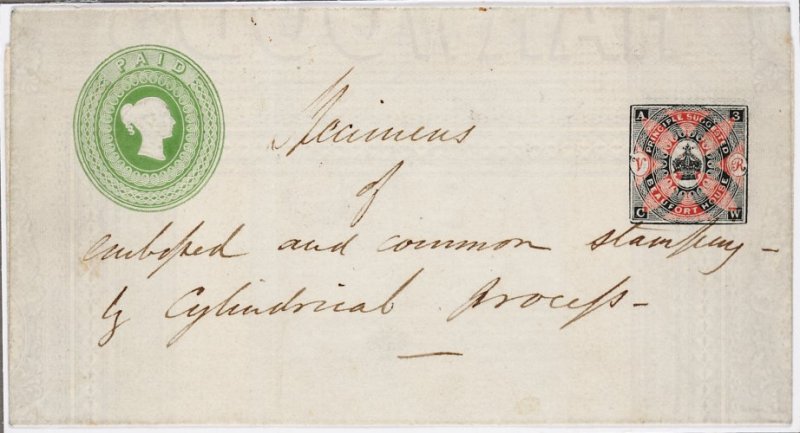 PAID
A 3
PRINCIPLE SUGGESTED
V R
BEAUFORT HOUSE
C W
Specimens
of
embossed and common stamping –
by Cylindrical Process –